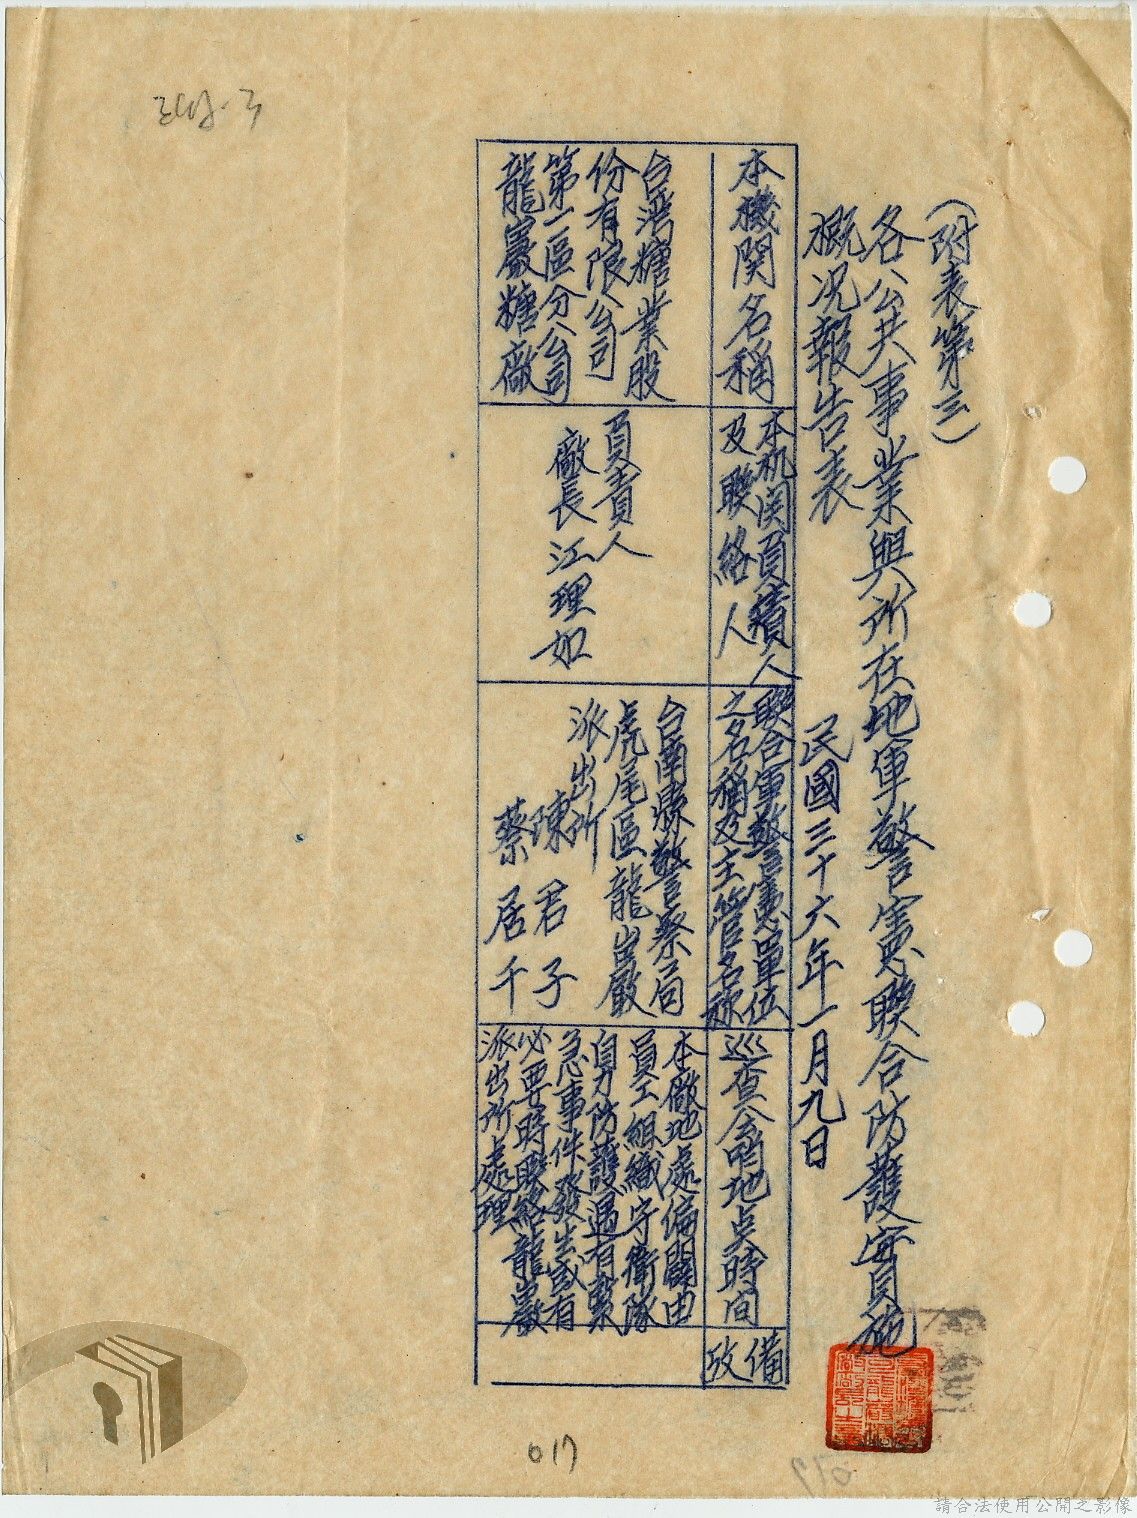 (附表第三)
各公共事業與所在地軍警憲聯合防護實施
概況報告表
民國三十六年一月九日
本機関名稱
台湾糖業股
份有限公司
第一區分公司
龍巖糖廠
本机関負責人
及聯絡人
負責人
廠長江理如
聯合軍警憲單位
之名稱及主管名称
台南縣警察局
虎尾區龍巖
派出所
陳君子
蔡居千
巡查会哨地点時间
本廠地處偏闢由
員工組織守衛隊
自力防護遇有緊
急事件發生或有
必要時聯絡龍巖
派出所處理
備攷
017
請合法使用公開之影像